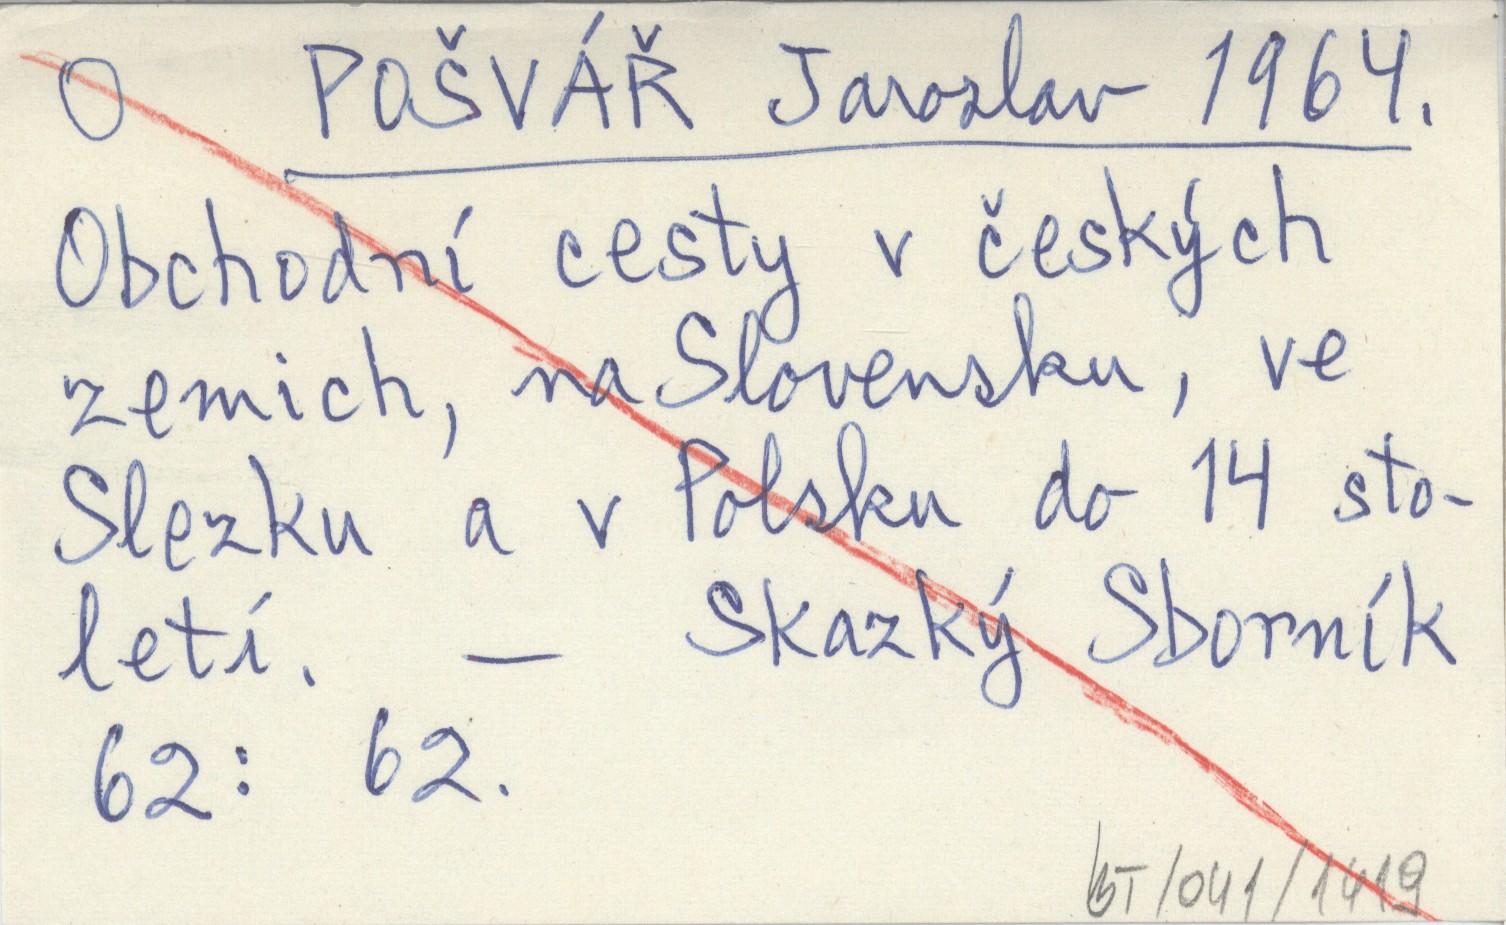 O POŠVÁŘ Jaroslav 1964.
Obchodní cesty v českých
zemich, na Slovensku, ve
Slezku a v Polsku do 14 sto-
letí. — Skazký Sborník
62: 62.
BT/041/1419